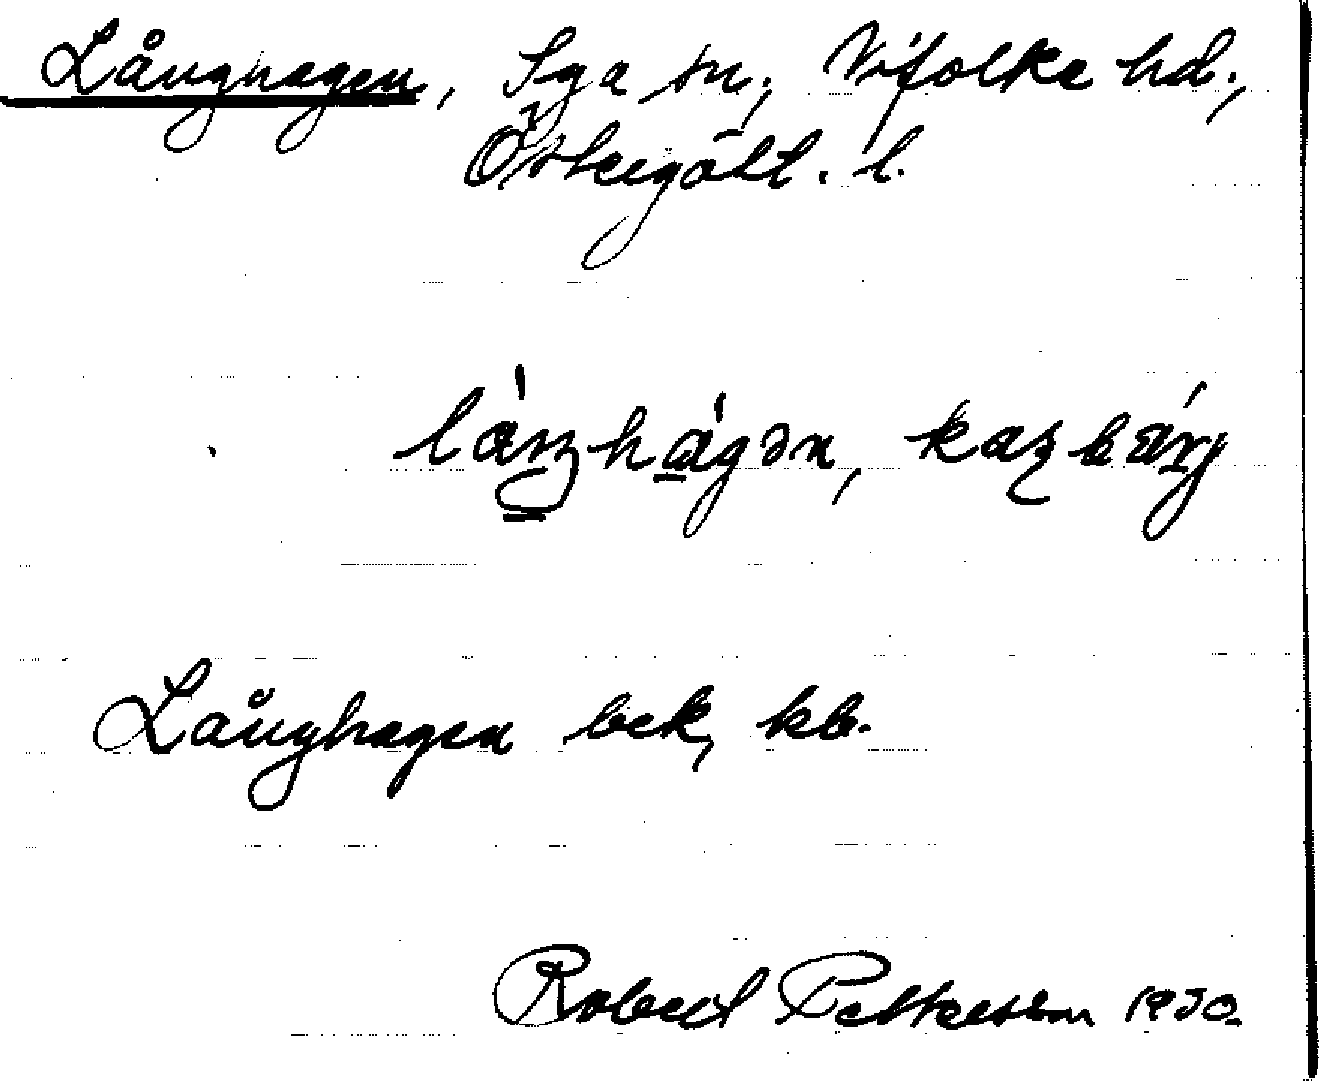 Långhagen, Sya sn, Vifolka hd,
Östergötl. l.
Långhagen bek, kb.
Robert Pettersson 1930.